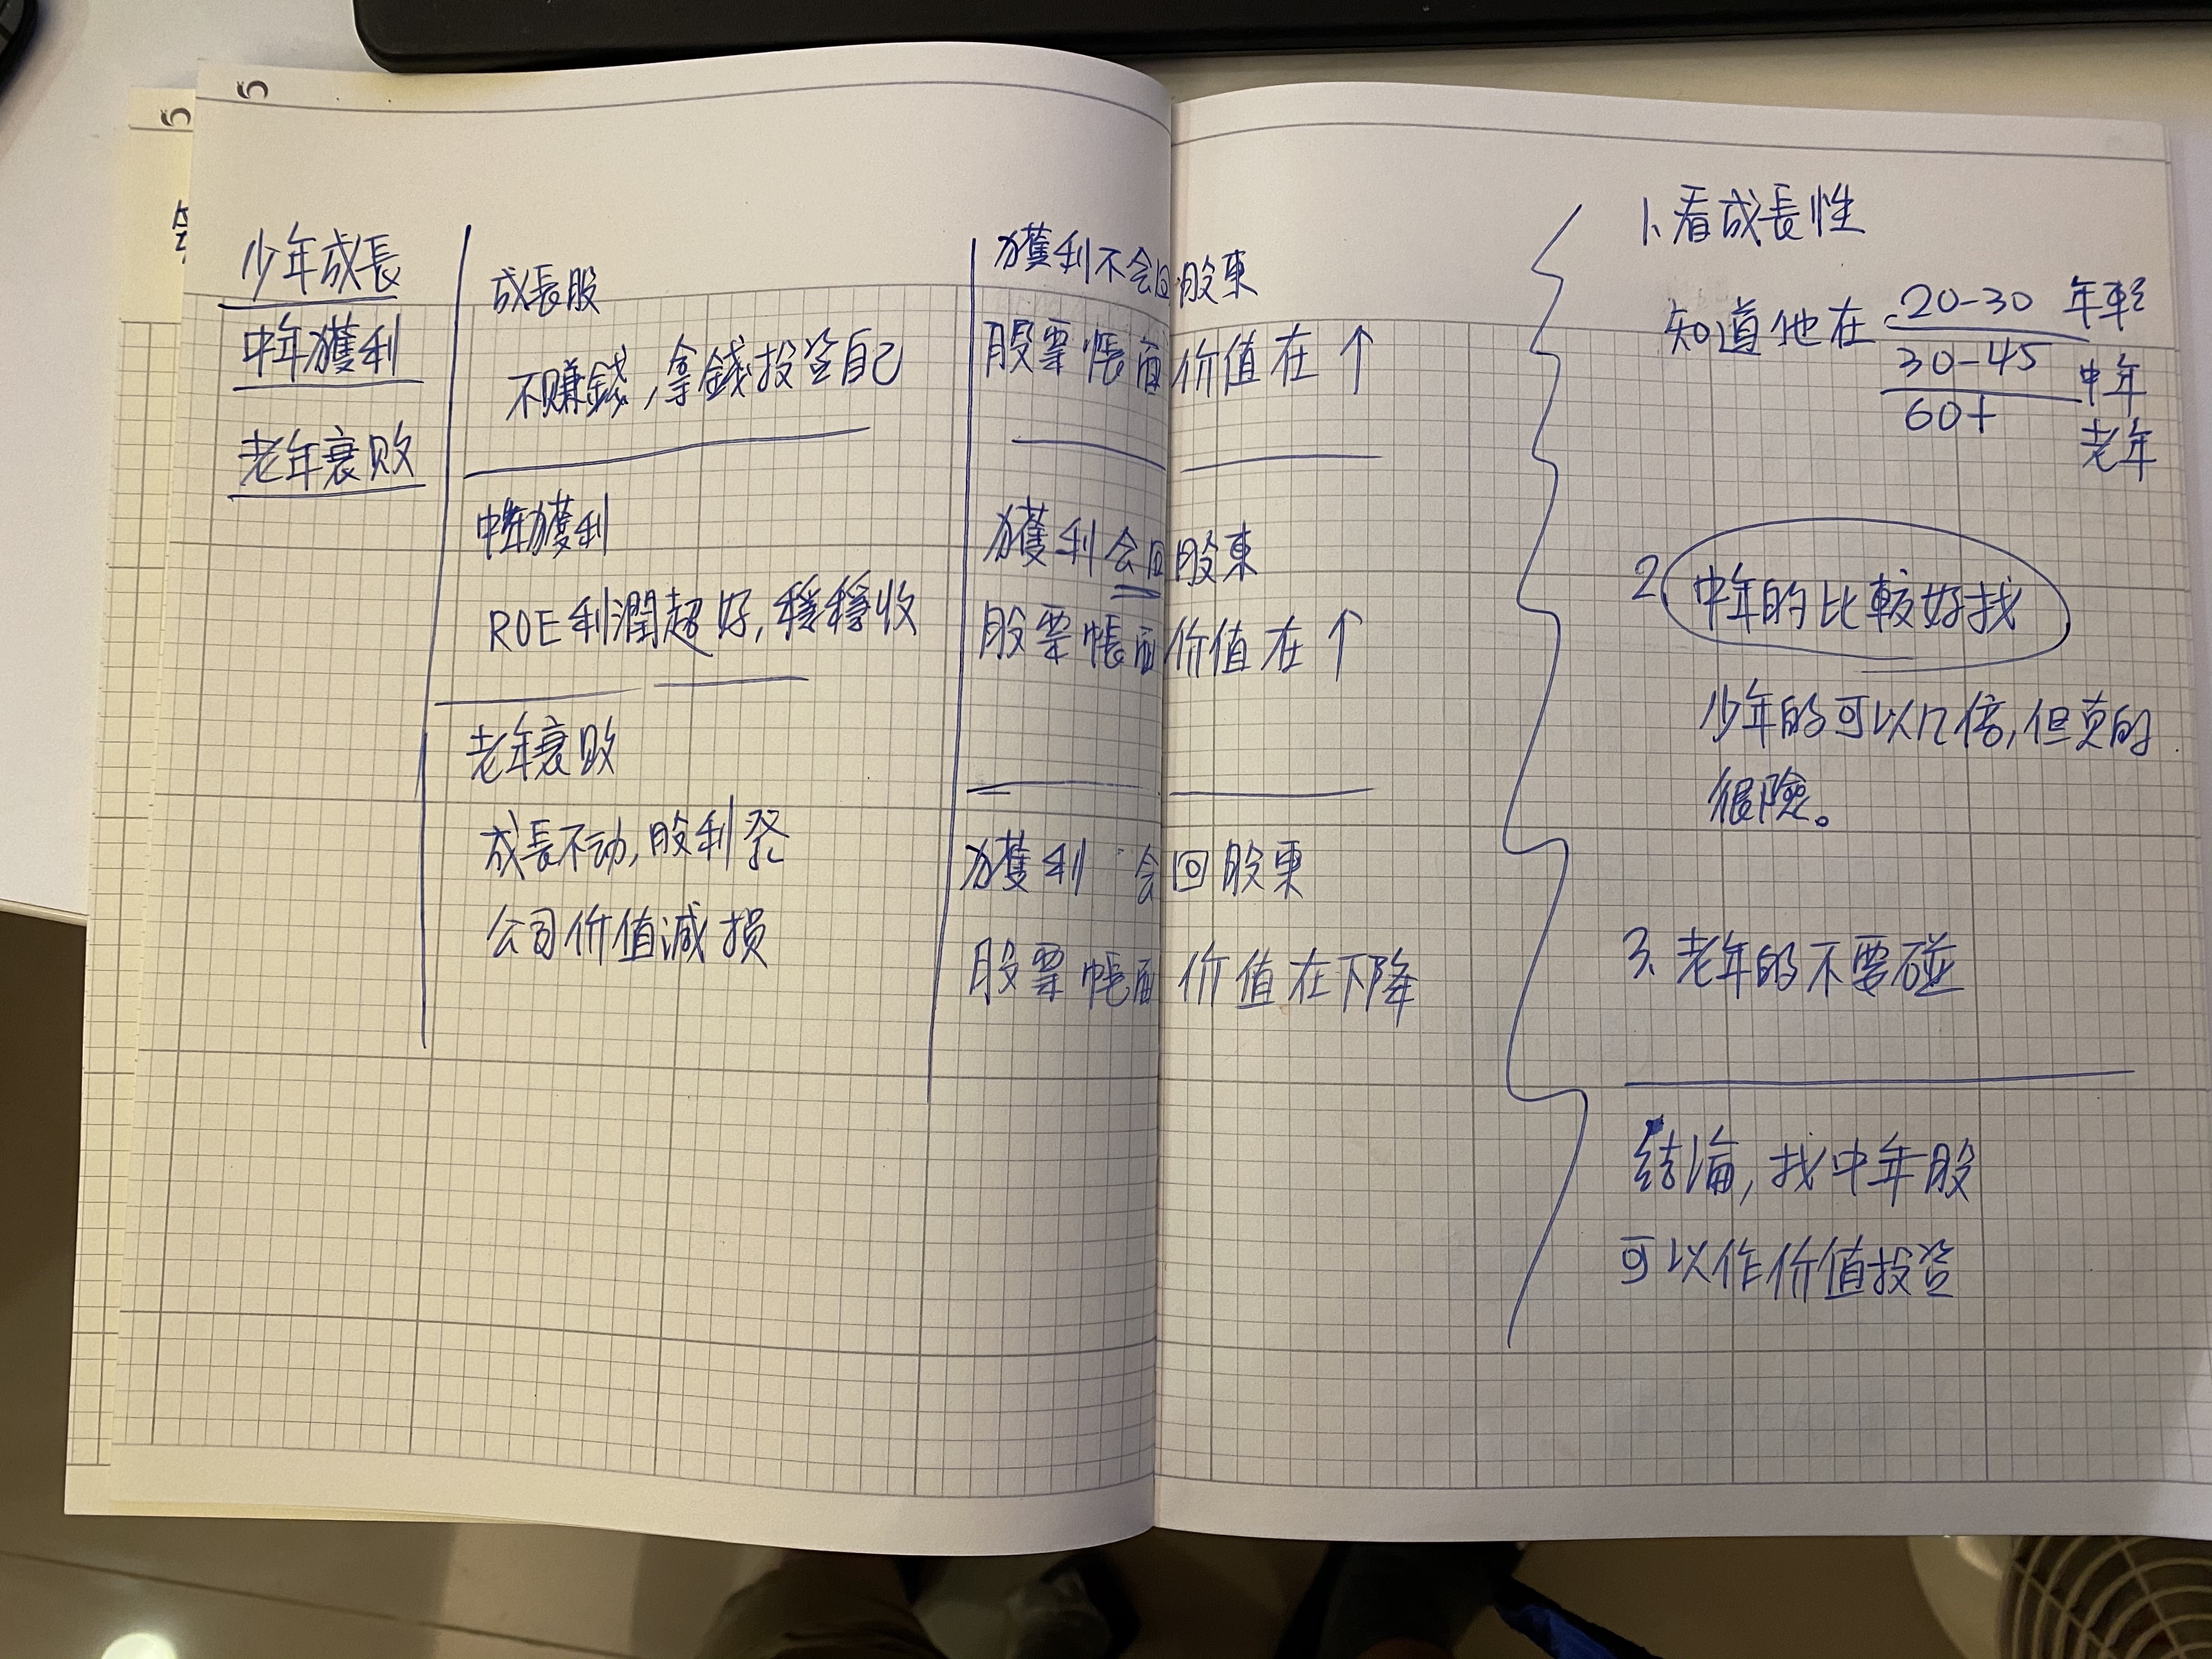 5
5
少年成長
中年獲利
老年衰敗
成長股
不賺錢,拿錢投資自己
中年獲利
ROE利潤超好,穩穩收
老年衰敗
成長不动,股利発
公司价值減損
獲利不会回股東
股票帳面价值在↑
獲利会回股東
股票帳面价值在↑
獲利会回股東
股票帳面价值在下降
1、看成長性
知道他在 20-30 年輕
30-45 中年
60+ 老年
2、中年的比較好找
少年的可以几倍,但真的
很險。
3、老年的不要碰
結論,找中年股
可以作价值投資